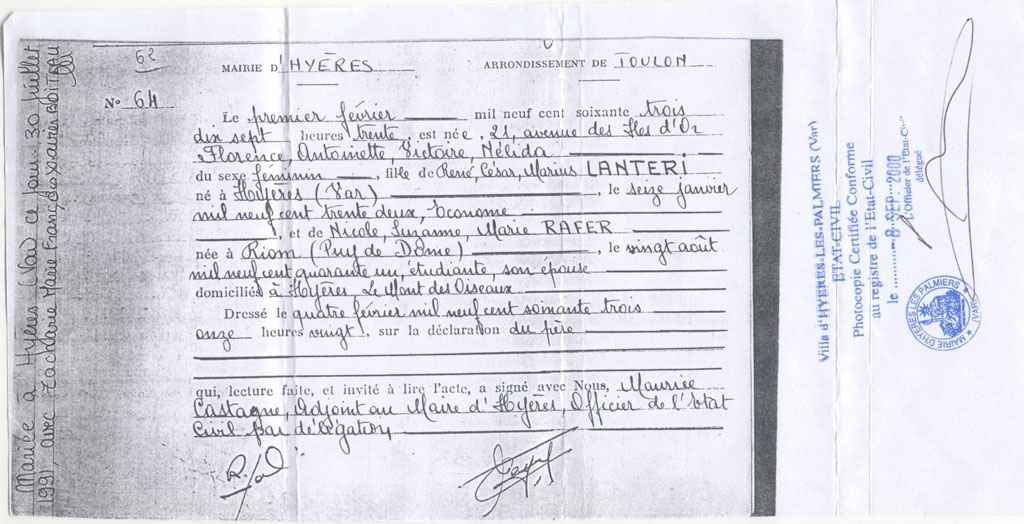 62
MAIRIE D'HYÈRES ARRONDISSEMENT DE TOULON
N° 64
Le premier février mil neuf cent soixante trois
dix sept heures trente, est née, 21, avenue des Iles d'Or
Florence, Antoinette, Victoire, Nélida
du sexe féminin, fille de René, César, Marius LANTERI
né à Hyères (Var), le seize janvier
mil neuf cent trente deux, Econome
, et de Nicole, Suzanne, Marie RAFER
née à Riom (Puy de Dôme), le vingt août
mil neuf cent quarante un, étudiante, son épouse
domiciliés à Hyères Le Mont des Oiseaux
Dressé le quatre février mil neuf cent soixante trois
onze heures vingt, sur la déclaration du père
qui, lecture faite, et invité à lire l'acte, a signé avec Nous, Maurice
Castagne, Adjoint au Maire d'Hyères, Officier de l'Etat
Civil par délégation
Mariée à Hyères (Var) ce jour 30 Juillet
1991, avec Zacharie Marie François Xavier BOITEAU
Ville d'HYERES-LES-PALMIERS (Var)
ETAT-CIVIL
Photocopie Certifiée Conforme
au registre de l'Etat-Civil
le 8 SEP. 2000
L'Officier de l'Etat-C
délégué
MAIRIE D'HYERES LES PALMIERS (VAR)